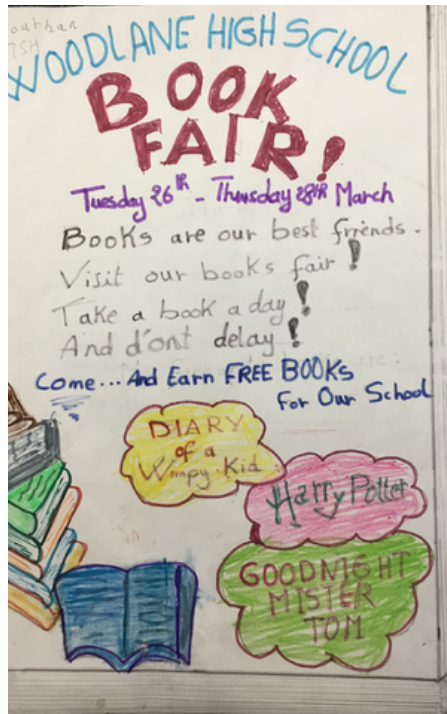 Jonathan
7SH
WOODLANE HIGH SCHOOL
BOOK
FAIR!
Tuesday 26th - Thursday 28th March
Books are our best friends.
Visit our books fair!
Take a book a day!
And d'ont delay!
Come... And Earn FREE BOOKs
For Our School
DIARY
of a
Wimpy Kid
Harry Potter
GOODNIGHT
MISTER
TOM